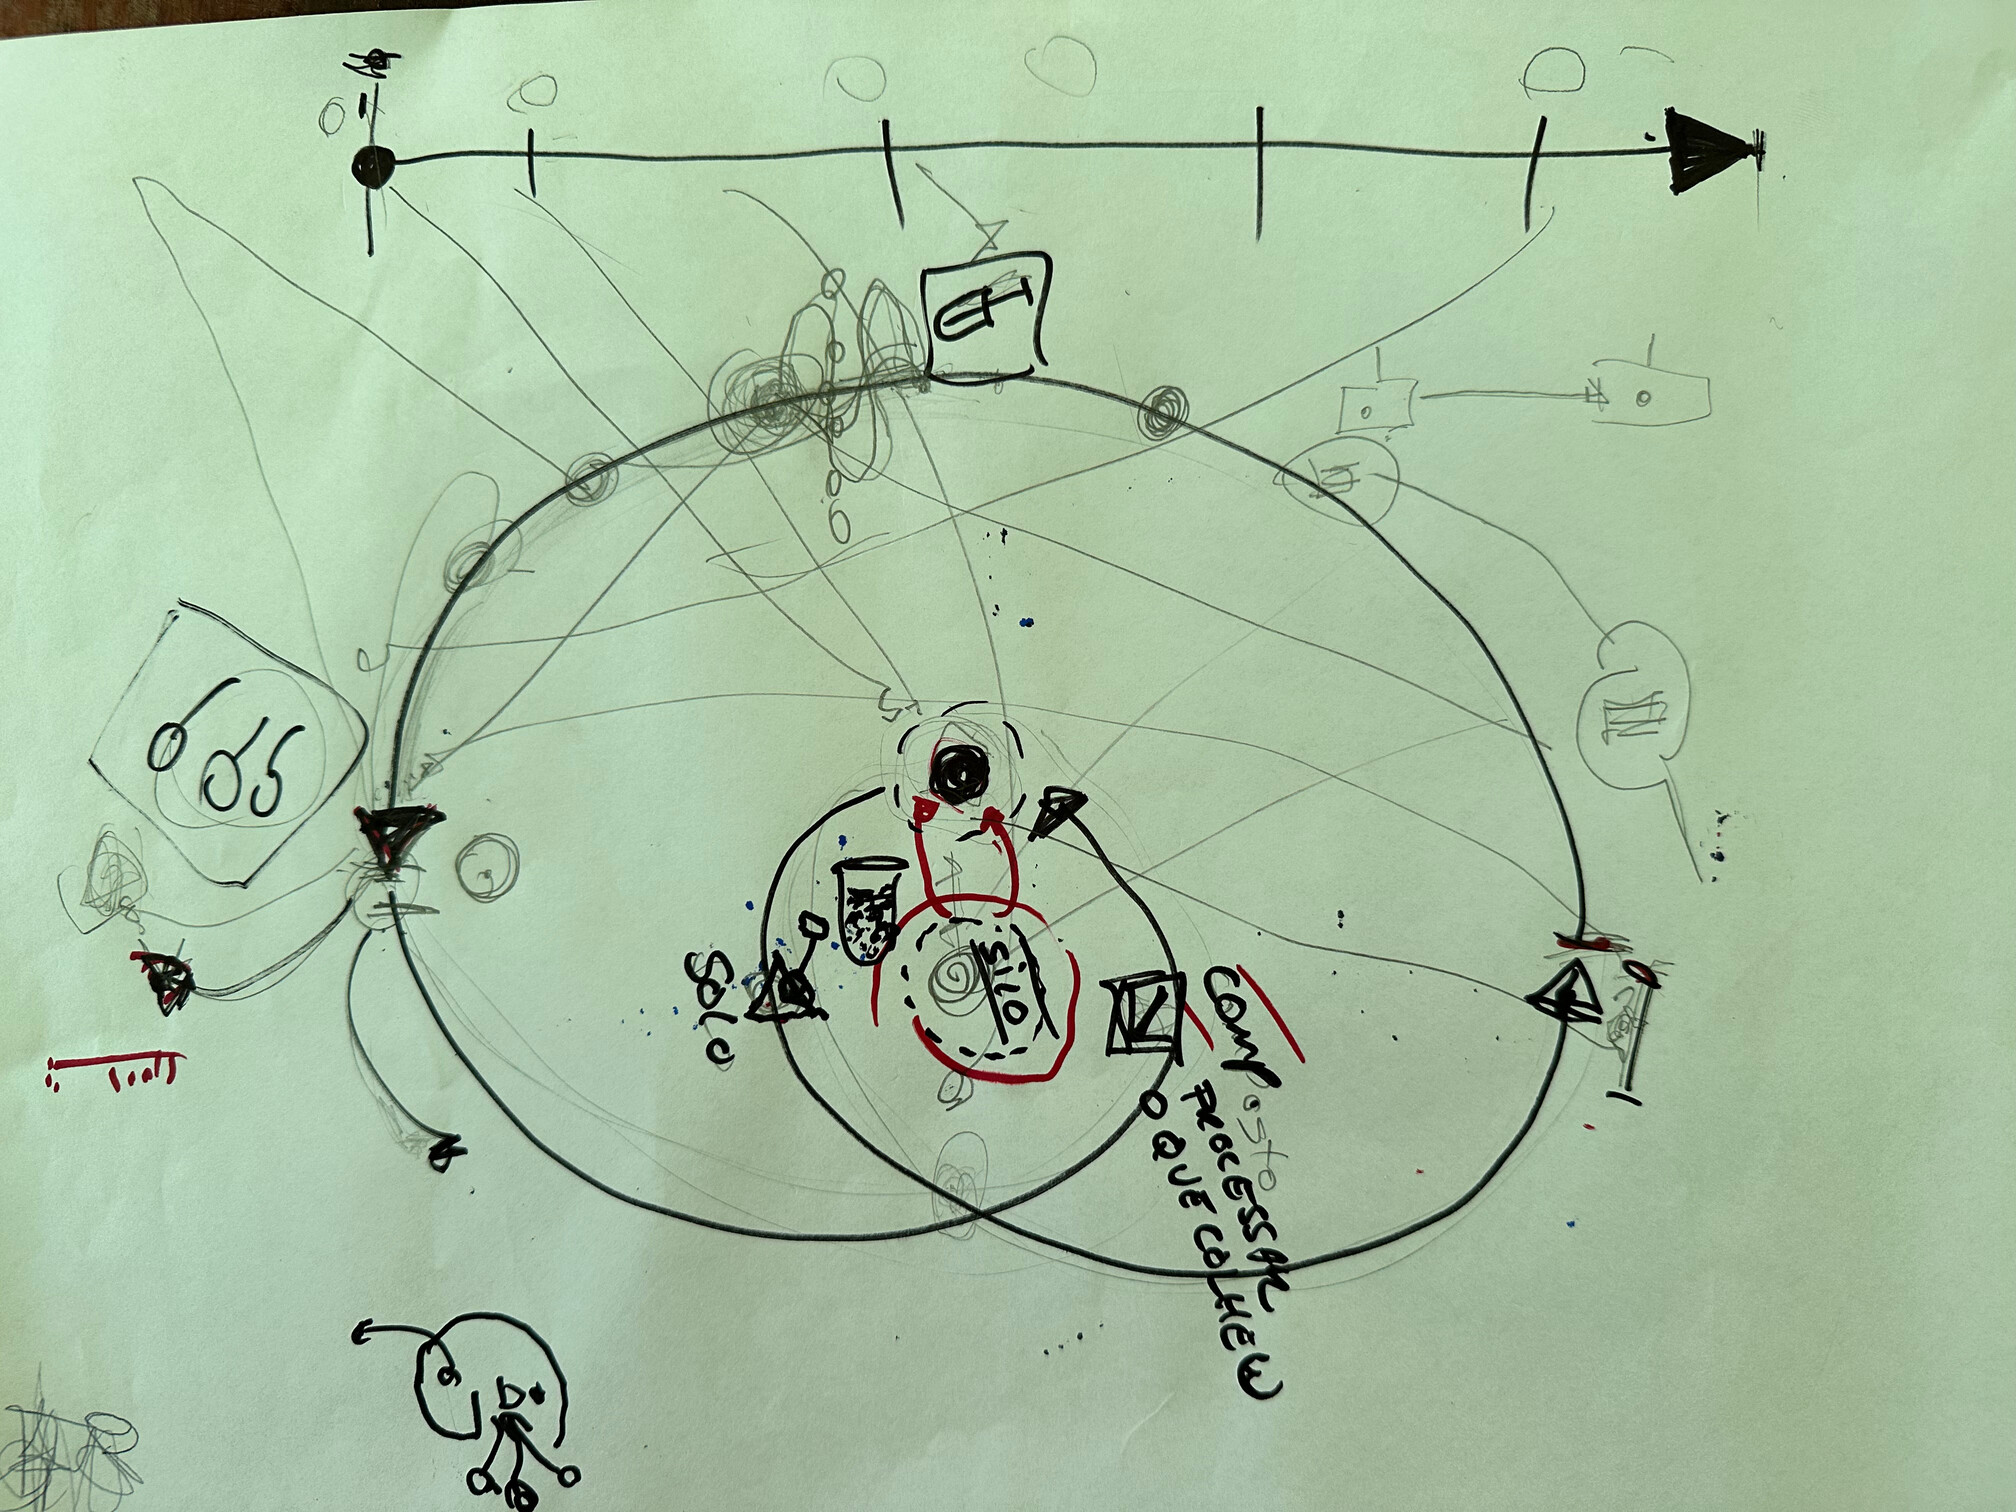 SOLO
SILO
Composto
PROCESSAR
O QUE COLHEU